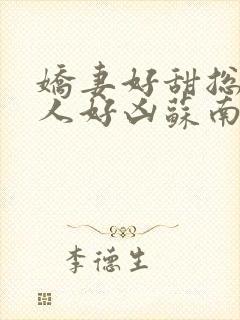 嬌妻好甜总
人好凶蘇南
李德生